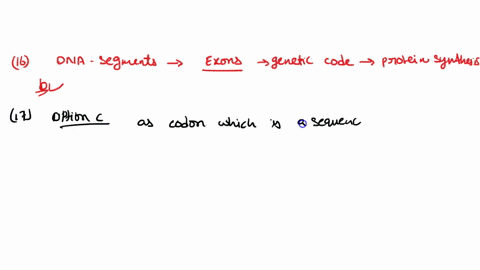 (16) DNA - segments → Exons → genetic code → protein synthesis
b
(17) Option C as codon which is a sequenc